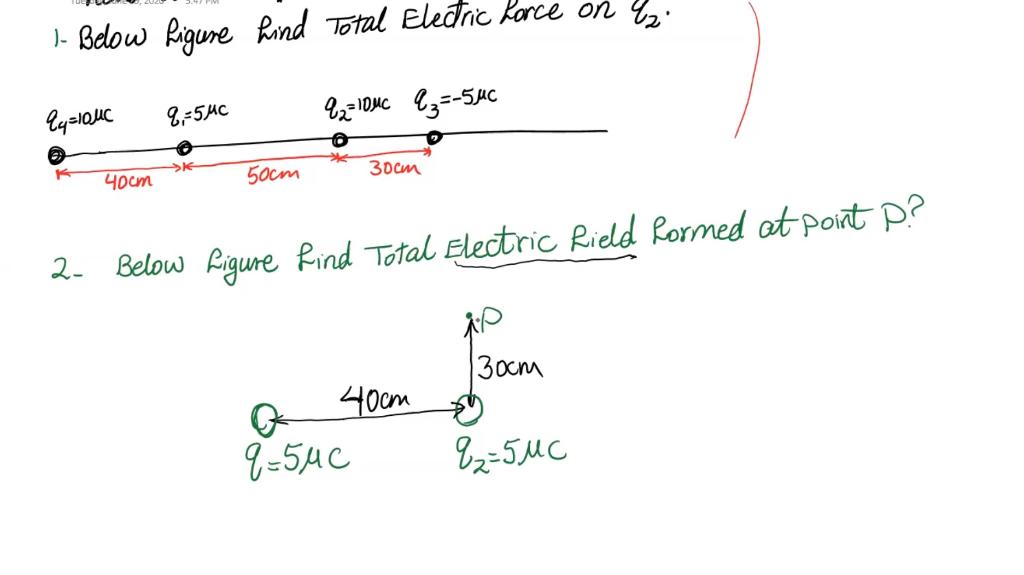 5:47 PM
1- Below figure find Total Electric force on q₂.
q₄=10μC q₁=5μC q₂=10μC q₃=-5μC
40cm 50cm 30cm
2- Below figure find Total Electric field formed at point P?
P
30cm
40cm
q=5μC q₂=5μC